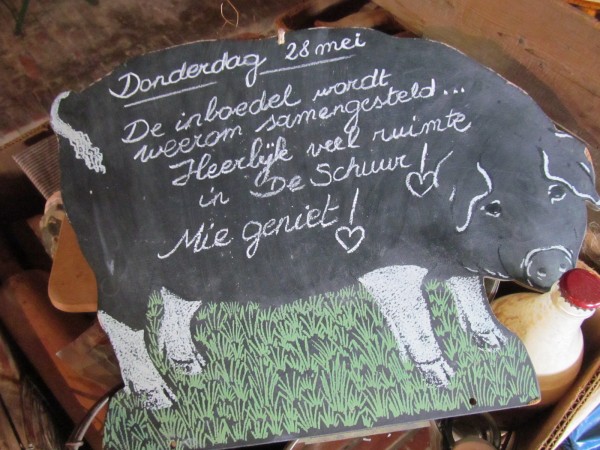 Donderdag 28 mei
De inboedel wordt
weerom samengesteld...
Heerlijk veel ruimte
in De Schuur!
Mie geniet!